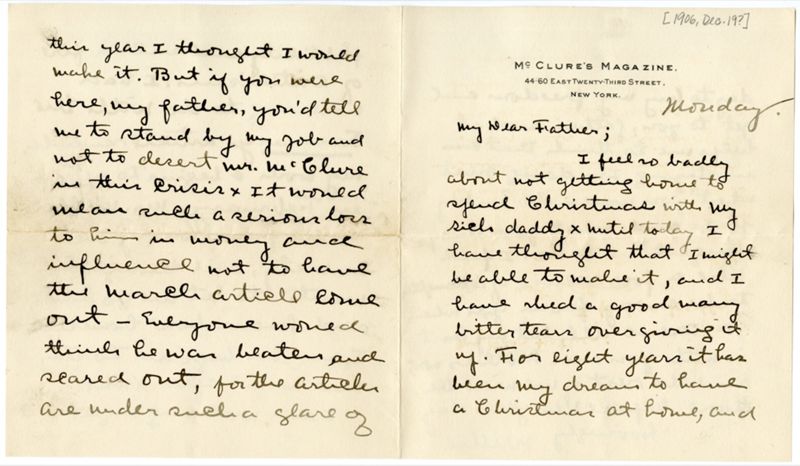 [1906, Dec. 19?]
McCLURE'S MAGAZINE.
44-60 EAST TWENTY-THIRD STREET,
NEW YORK.
Monday.
My Dear Father;
I feel so badly
about not getting home to
spend Christmas with my
sick daddy x until today I
have thought that I might
be able to make it, and I
have shed a good many
bitter tears over giving it
up. For eight years it has
been my dream to have
a Christmas at home, and
this year I thought I would
make it. But if you were
here, my father, you'd tell
me to stand by my job and
not to desert Mr. McClure
in this crisis x It would
mean such a serious loss
to him in money and
influence not to have
the March article come
out — Everyone would
think he was beaten and
scared out, for the articles
are under such a glare of